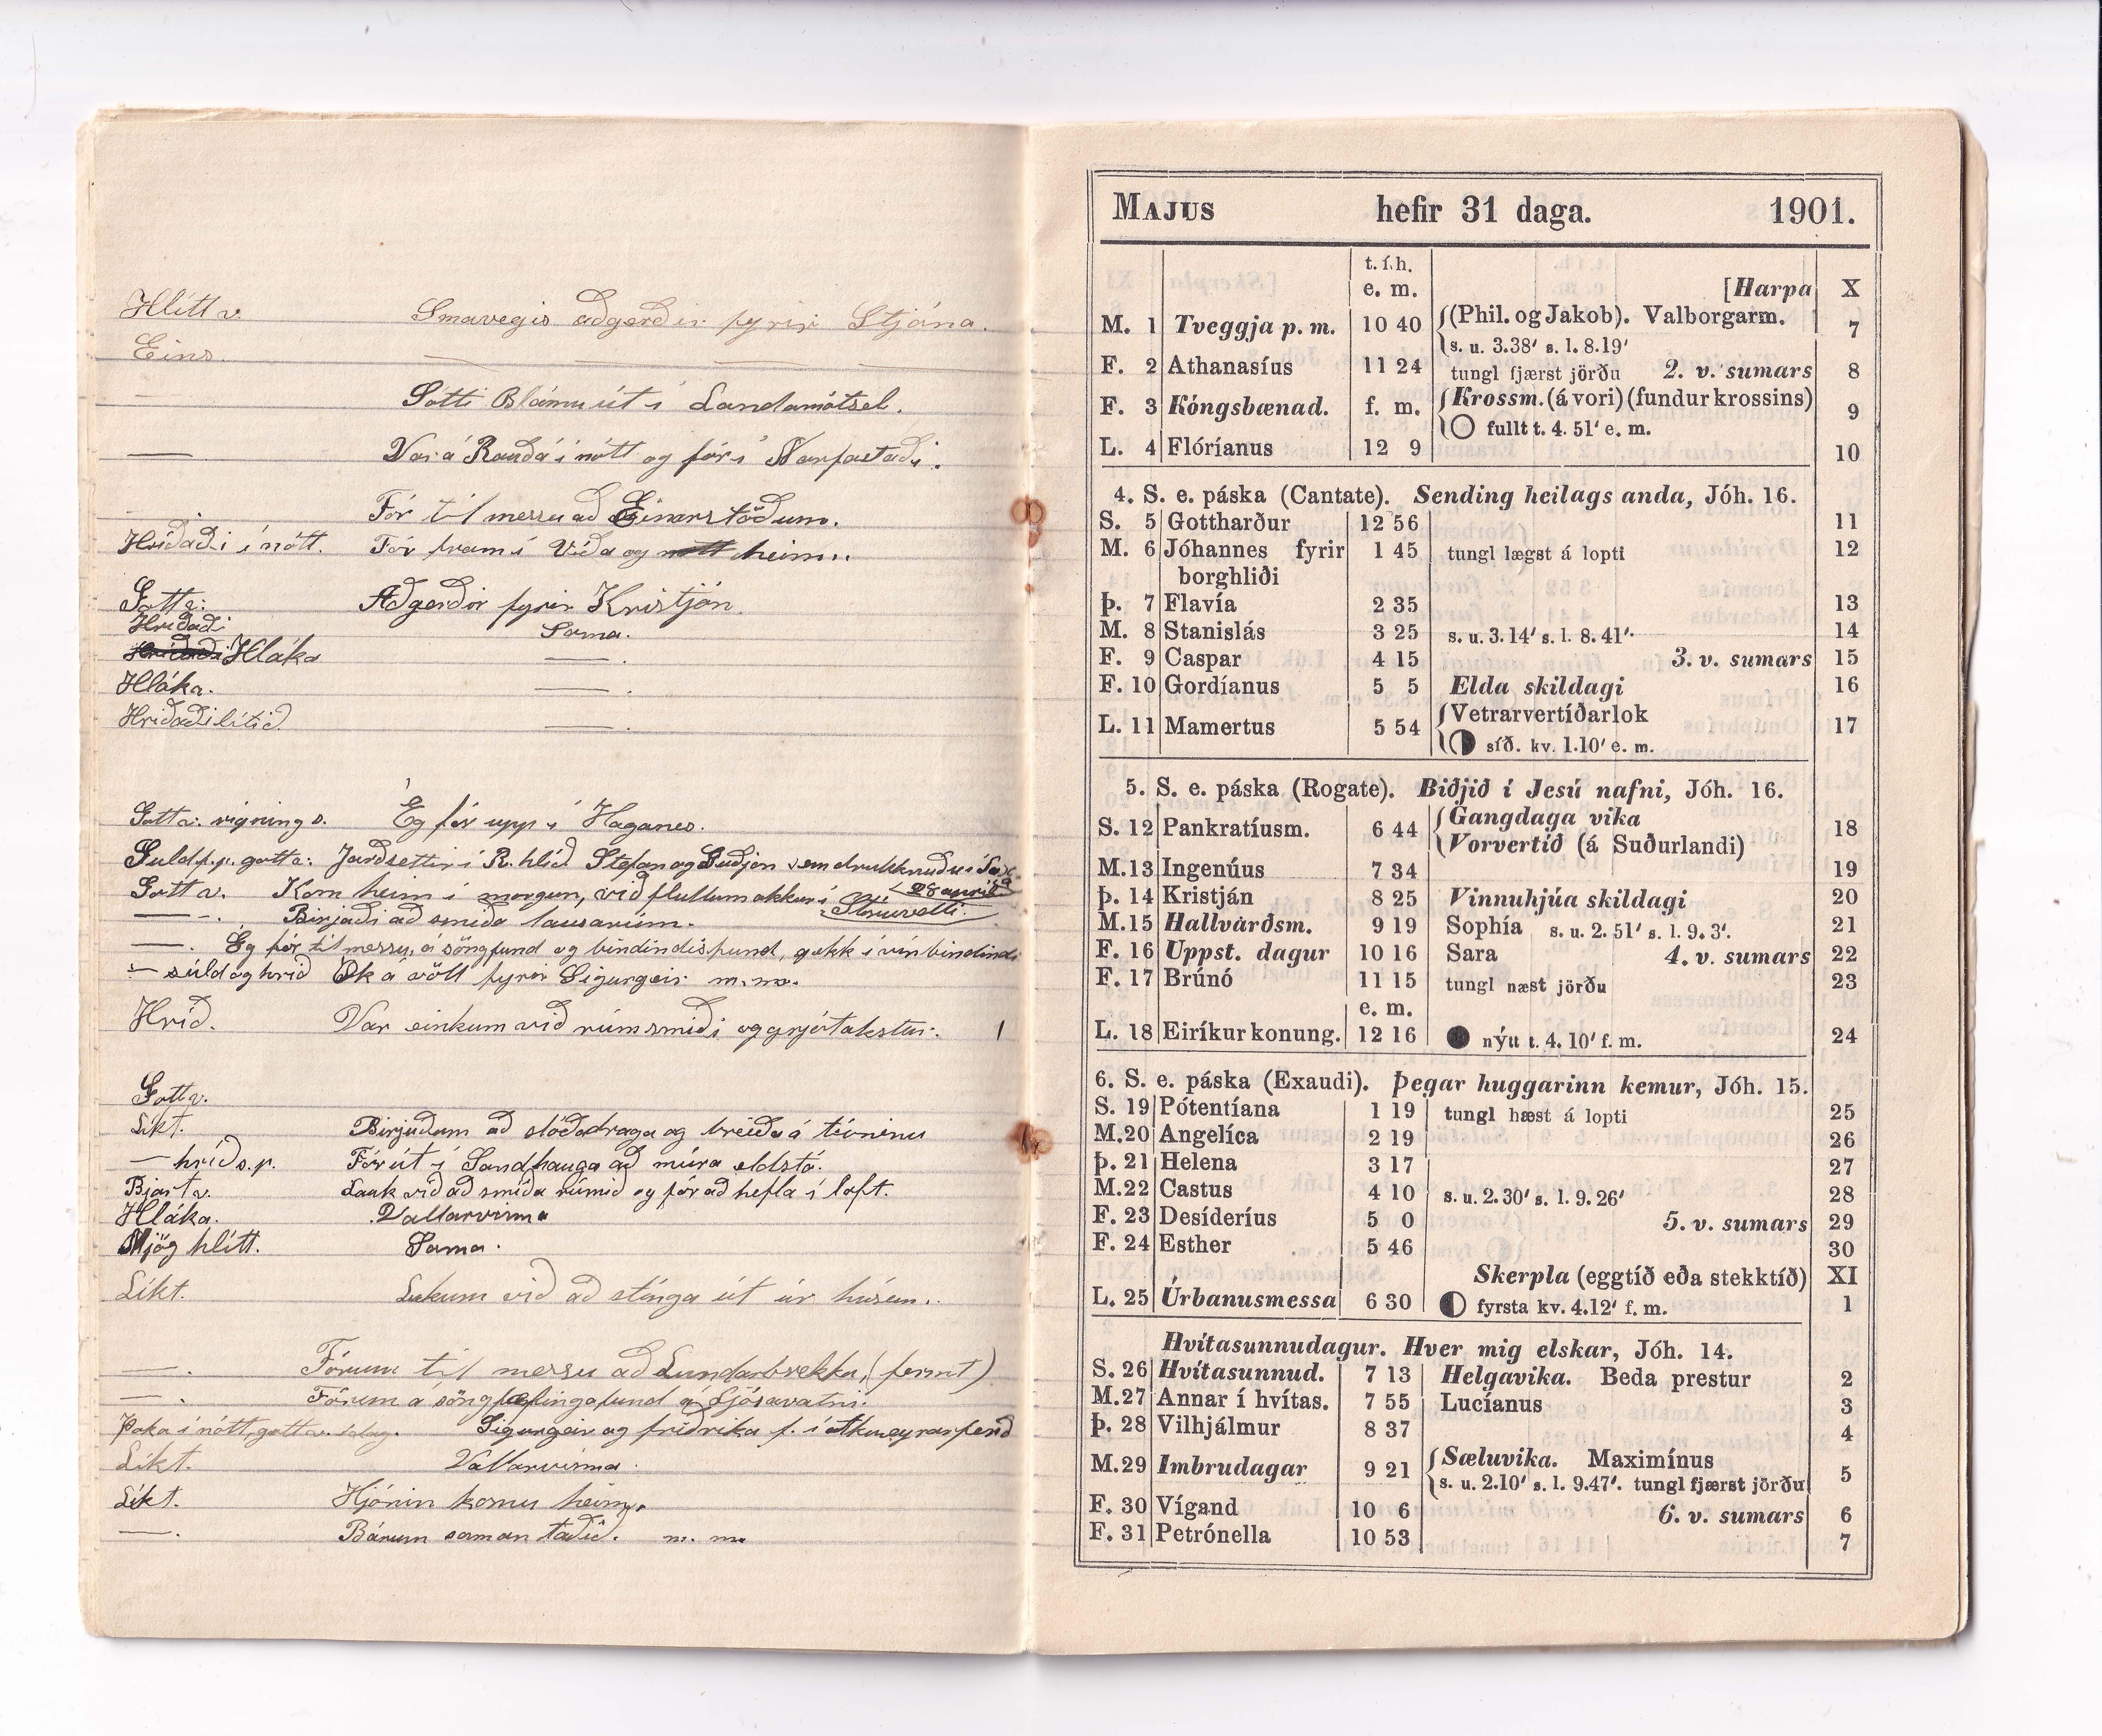 Hlítt v. Smavegis aðgerðir fyrir Stjána.
Eins. — — —
— Sótti Blámu út í Landamótsel.
— Var á Rauðá í nótt og fór í Narfastaði.
— Fór til messu að Einarstöðum.
Hríðaði í nótt. Fór fram í Víða og nott heim..
Gott v: Aðgerðir fyrir Kristján.
Hríðaði Sama.
Hríðaði Hláka — .
Hláka. — .
Hríðaði lítið. — .
Gott v. rigning s. Ég fór upp í Haganes.
Suld f.p. gott v: Jarðsettir í R.hlíð Stefan og Guðjón sem drukknuðu í
28 apríl
Gott v. Kom heim í morgun, við fluttum okkur í Stóruvelli.
— . Birjaði að smíða lausarúm.
— . Eg fór til messu, á söngfund og bindindisfund, gekk í vínbindindi
— súld og hríð Ók á völl fyrir Sigurgeir m.m.
Hríð. Var einkum við rúmsmíði og grjótakstur. 1
Gott v.
Líkt. Birjuðum að slóðadraga og breiða á túninu
— hríð s.p. Fór út í Sandhauga að múra eldstó.
Bjart v. Lauk við að smíða rúmið og fór að hefla í loft.
Hláka. Vallarvinna
Mjög hlítt. Sama.
Líkt. Lukum við að stinga út úr húsum..
— . Fórum til messu að Lundarbrekku, (fermt)
— . Fórum á söngæfingafund á Ljósavatni.
Þoka í nótt, gott v. í dag. Sigurgeir og friðrika f. í Akureyrarferð
Líkt. Vallarvinna.
Líkt. Hjónin komu heim.
— . Bárum saman taðið. m. m.
MAJUS hefir 31 daga. 1901.
t. í. h.
e. m. [Harpa X
M. 1 Tveggja p. m. 10 40 (Phil. og Jakob). Valborgarm. 7
s. u. 3.38' s. l. 8.19'
F. 2 Athanasíus 11 24 tungl fjærst jörðu 2. v. sumars 8
F. 3 Kóngsbænad. f. m. Krossm. (á vori) (fundur krossins) 9
fullt t. 4. 51' e. m.
L. 4 Flóríanus 12 9 10
4. S. e. páska (Cantate). Sending heilags anda, Jóh. 16.
S. 5 Gottharður 12 56 11
M. 6 Jóhannes fyrir 1 45 tungl lægst á lopti 12
borghliði
Þ. 7 Flavía 2 35 13
M. 8 Stanislás 3 25 s. u. 3. 14' s. l. 8. 41'. 14
F. 9 Caspar 4 15 3. v. sumars 15
F. 10 Gordíanus 5 5 Elda skildagi 16
L. 11 Mamertus 5 54 Vetrarvertíðarlok 17
síð. kv. 1.10' e. m.
5. S. e. páska (Rogate). Biðjið í Jesú nafni, Jóh. 16.
S. 12 Pankratíusm. 6 44 Gangdaga vika 18
Vorvertíð (á Suðurlandi)
M. 13 Ingenúus 7 34 19
Þ. 14 Kristján 8 25 Vinnuhjúa skildagi 20
M. 15 Hallvarðsm. 9 19 Sophía s. u. 2. 51' s. l. 9. 3'. 21
F. 16 Uppst. dagur 10 16 Sara 4. v. sumars 22
F. 17 Brúnó 11 15 tungl næst jörðu 23
e. m.
L. 18 Eiríkur konung. 12 16 nýtt t. 4. 10' f. m. 24
6. S. e. páska (Exaudi). Þegar huggarinn kemur, Jóh. 15.
S. 19 Pótentíana 1 19 tungl hæst á lopti 25
M. 20 Angelíca 2 19 26
Þ. 21 Helena 3 17 27
M. 22 Castus 4 10 s. u. 2. 30' s. l. 9. 26' 28
F. 23 Desíderíus 5 0 5. v. sumars 29
F. 24 Esther 5 46 30
Skerpla (eggtíð eða stekktíð) XI
L. 25 Úrbanusmessa 6 30 fyrsta kv. 4.12' f. m. 1
Hvítasunnudagur. Hver mig elskar, Jóh. 14.
S. 26 Hvítasunnud. 7 13 Helgavika. Beda prestur 2
M. 27 Annar í hvítas. 7 55 Lucíanus 3
Þ. 28 Vilhjálmur 8 37 4
M. 29 Imbrudagar 9 21 Sæluvika. Maximínus 5
s. u. 2.10' s. l. 9.47'. tungl fjærst jörðu
F. 30 Vígand 10 6 6. v. sumars 6
F. 31 Petrónella 10 53 7